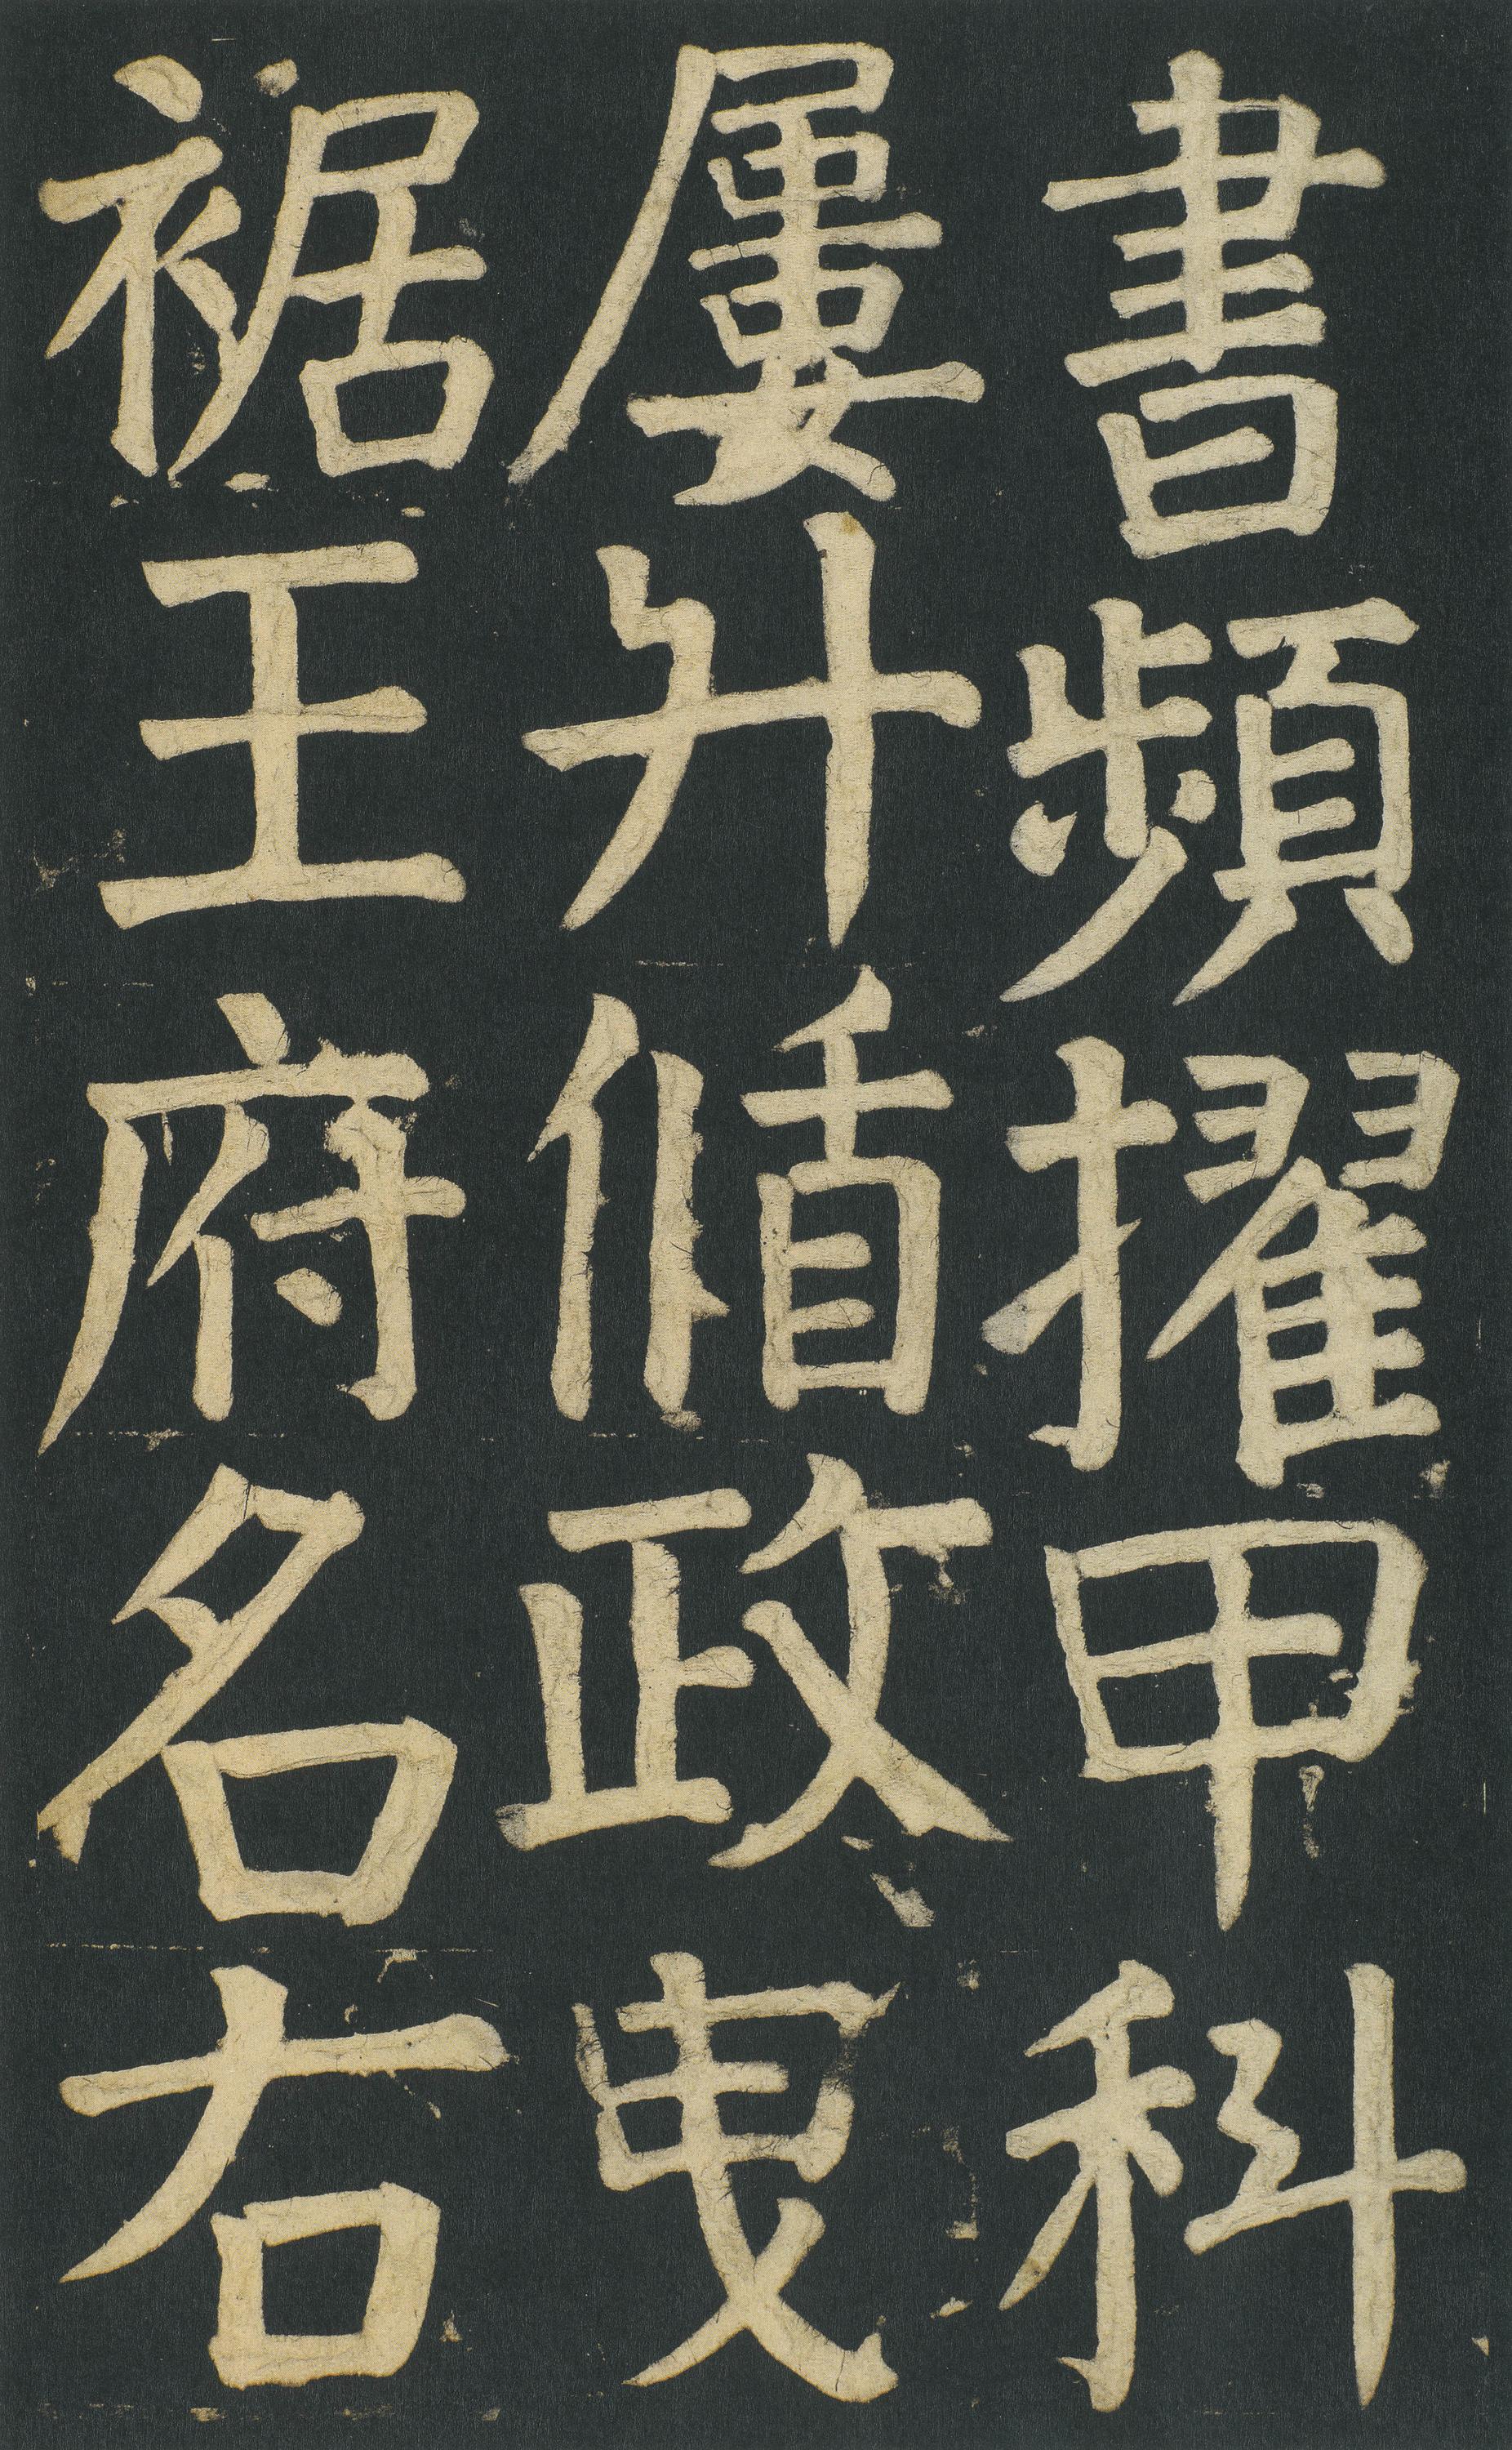 書頻擢甲科
屢升循政曳
裾王府名右